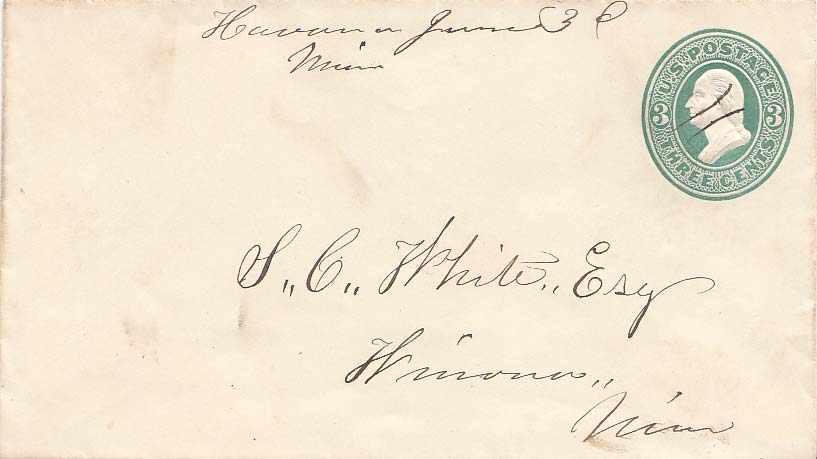 Havana June 3
Minn
U.S. POSTAGE
3 3
THREE CENTS
S,, C,, White,, Esq
Winona,,
Minn